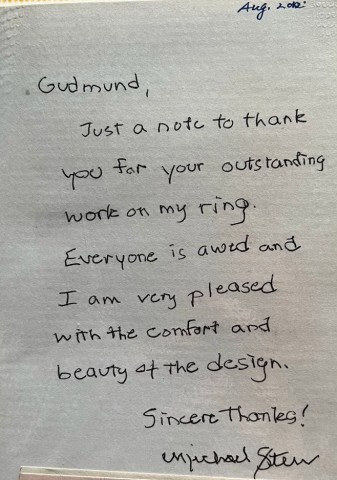 Aug.
Gudmund,
Just a note to thank
you for your outstanding
work on my ring.
Everyone is awed and
I am very pleased
with the comfort and
beauty of the design.
Sincere Thanks!
Michael